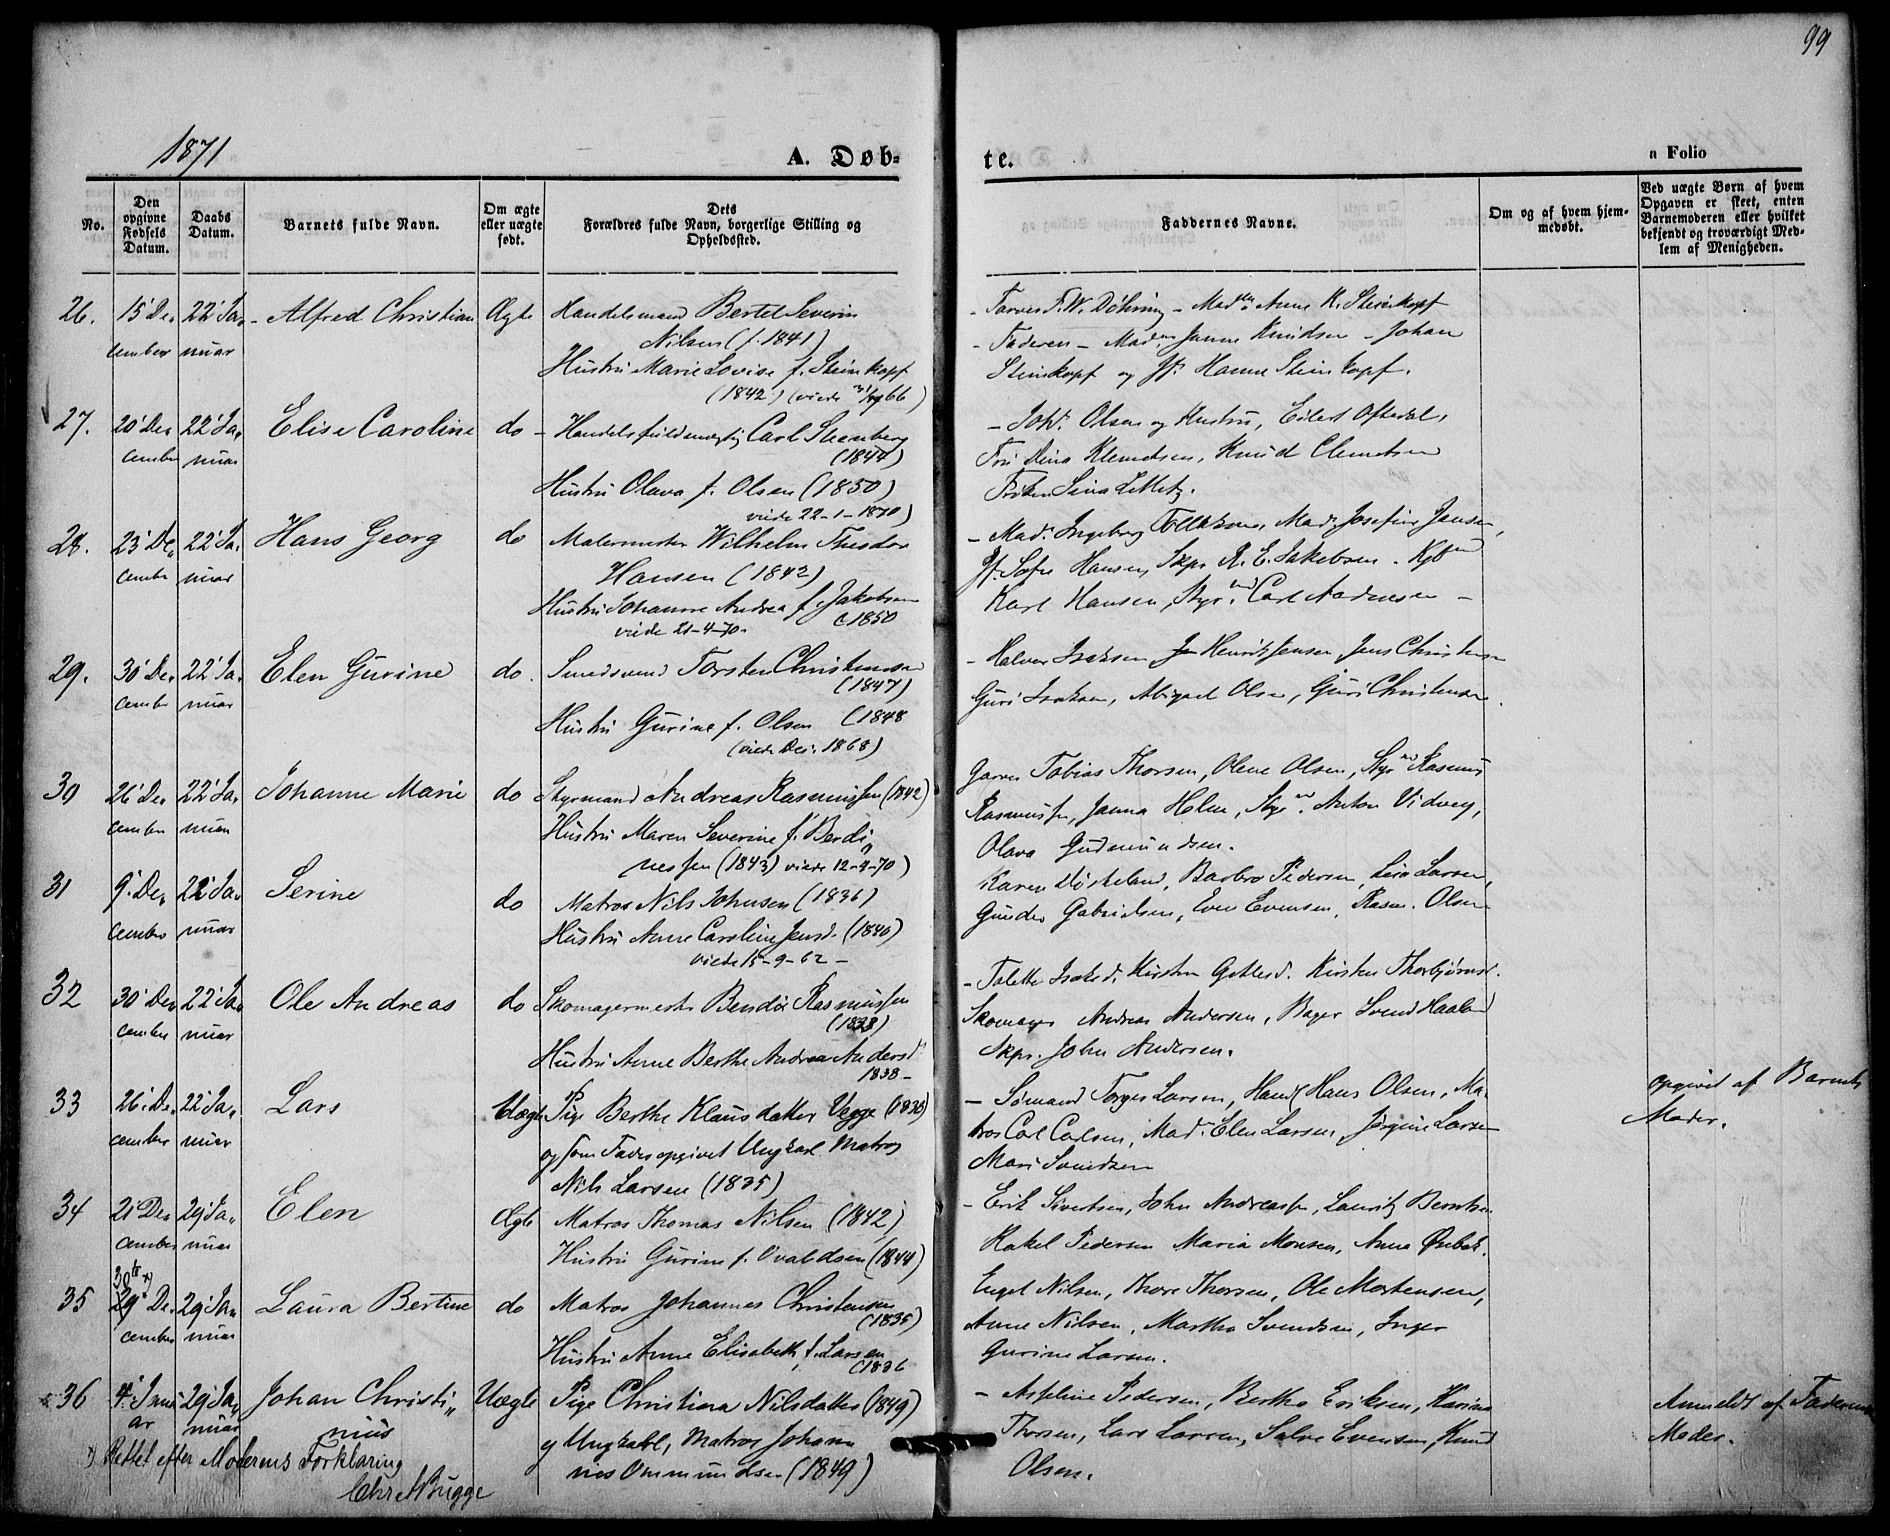 99
1871
A. Døb-
te.
a Folio
No.
Den opgivne Fødsels Datum.
Daabs Datum.
Barnets fulde Navn.
Om ægte eller uægte født.
Dets
Forældres fulde Navn, borgerlige Stilling og
Opholdssted.
Faddernes Navne.
Om og af hvem hjem-
medøbt.
Ved uægte Børn af hvem
Opgaven er skeet, enten
Barnemoderen eller hvilket
bekjendt og troværdigt Med-
lem af Menigheden.
26. 15 De 22 Ja, Alfred Christian Ægte Handelsmand Bertel Severin
cember nuar Nilsen (f. 1841)
Hustru Marie Lovise f. Steinkopf
(1842) (viede 66)
- F. W. Döhring - Anne K. Steinkopf
- Faderen - Mad. Janne Knudsen - Johan
Steinkopf og Jf. Hanne Steinkopf.
27. 20 De 22 Ja, Elise Caroline do - Handelsfuldmægtig Carl Steenberg
cember nuar (1844)
Hustru Olava f. Olsen (1850)
viede 22-1-1870)
- Olsen og Hustru, Eilert Oftedal,
Dina Klemetsen, Knud Clemetsen
Frøken Sina
28. 23 De 22 Ja, Hans Georg do Malermester Wilhelm Theodor
cember nuar Hansen (1842)
Hustru Johanne Andrea f. Jakobsen
viede 21-4-70. (1850
- Mad. Ingeborg Mad. Josefine Jansen,
Jf. Sofie Hansen, Skpr R. E. Jakobsen.
Karl Hansen, Styr. Carl
29. 30 De 22 Ja, Elen Gurine do. Smedsvend Torsten Christensen
cember nuar (1847)
Hustru Gurine f. Olsen (1848
(viede Des. 1868)
- Halvor Isaksen Henrik Jensen Jens Christensen
Guri Isaksen, Abigael Olsen, Guri Christensen.
30 26 De 22 Ja, Johanne Marie do Styrmand Andreas Rasmussen (1842)
cember nuar Hustru Maren Severine f. Berdi„
nessen (1843) viede 12-4-70)
Garver Tobias Thorsen, Olene Olsen, Styr Rasmus
Rasmussen, Janna Helen, Styr. Anton Vidvey,
Olava Gudmundsen.
31 9 De, 22 Ja, Serine do Matros Nils Johnsen (1836)
cember nuar Hustru Anne Caroline Jensd. (1840)
viede 15-9-62-
Karen Barbro Pedersen, Lisa Larsen,
Gunder Gabrielsen, Even Evensen, Rasm. Olsen
32 30 De 22 Ja Ole Andreas do Skomagermester Bendix Rasmussen
cember nuar (1838)
Hustru Anne Berthe Andrea Andersd.
1838-
- Talette Isaksd. Kirsten Gotlesd. Kirsten Thorbjørnsd.
Skomager Andreas Andersen, Bager Svend Haaland
Skpr. John Andersen.
33 26. De, 22 Ja, Lars Uægte Pige Berthe Klausdatter Vegge (1838)
cember nuar og som Fader opgivet Ungkarl Matros
Nils Larsen (1835)
- Sømand Torger Larsen, Hans Olsen, Ma-
tros Carl Carlsen, Mad. Elen Larsen, Jørgine Larsen
Mari Svendsen
opgivet af Barnets
Moder.
34 21 De 29 Ja, Elen Ægte Matros Thomas Nilsen (1842)
cember nuar Hustru Gurine f. Ovaldsen (1844)
- Erik Sivertsen, John Andreassen, Lauritz Berntsen.
Rakel Pedersen Maria Monsen, Anna
30te x)
35 29 De. 29 Ja„ Laura Bertine do Matros Johannes Christensen
cember nuar (1835)
Hustru Anne Elisabeth f. Larsen
(1836
Engel Nilsen, Thore Thorsen, Ole Mortensen,
Anne Nilsen, Martha Svendsen, Inger
Gurine Larsen.
36 4 Janu 29 Ja„ Johan Christi„ Uægte Pige Christiana Nilsdatter (1849)
ar nuar nius og Ungkarl, Matros Johan
nes Ommundsen (1849)
- Aspeline Pedersen, Bertha Eriksen, Karina
Thorsen, Lars Larsen, Salve Evensen, Knud
Olsen.
Anmeldt af Faderens
Moder.
x) Rettet efter Moderens Forklaring
Chr. A Bugge